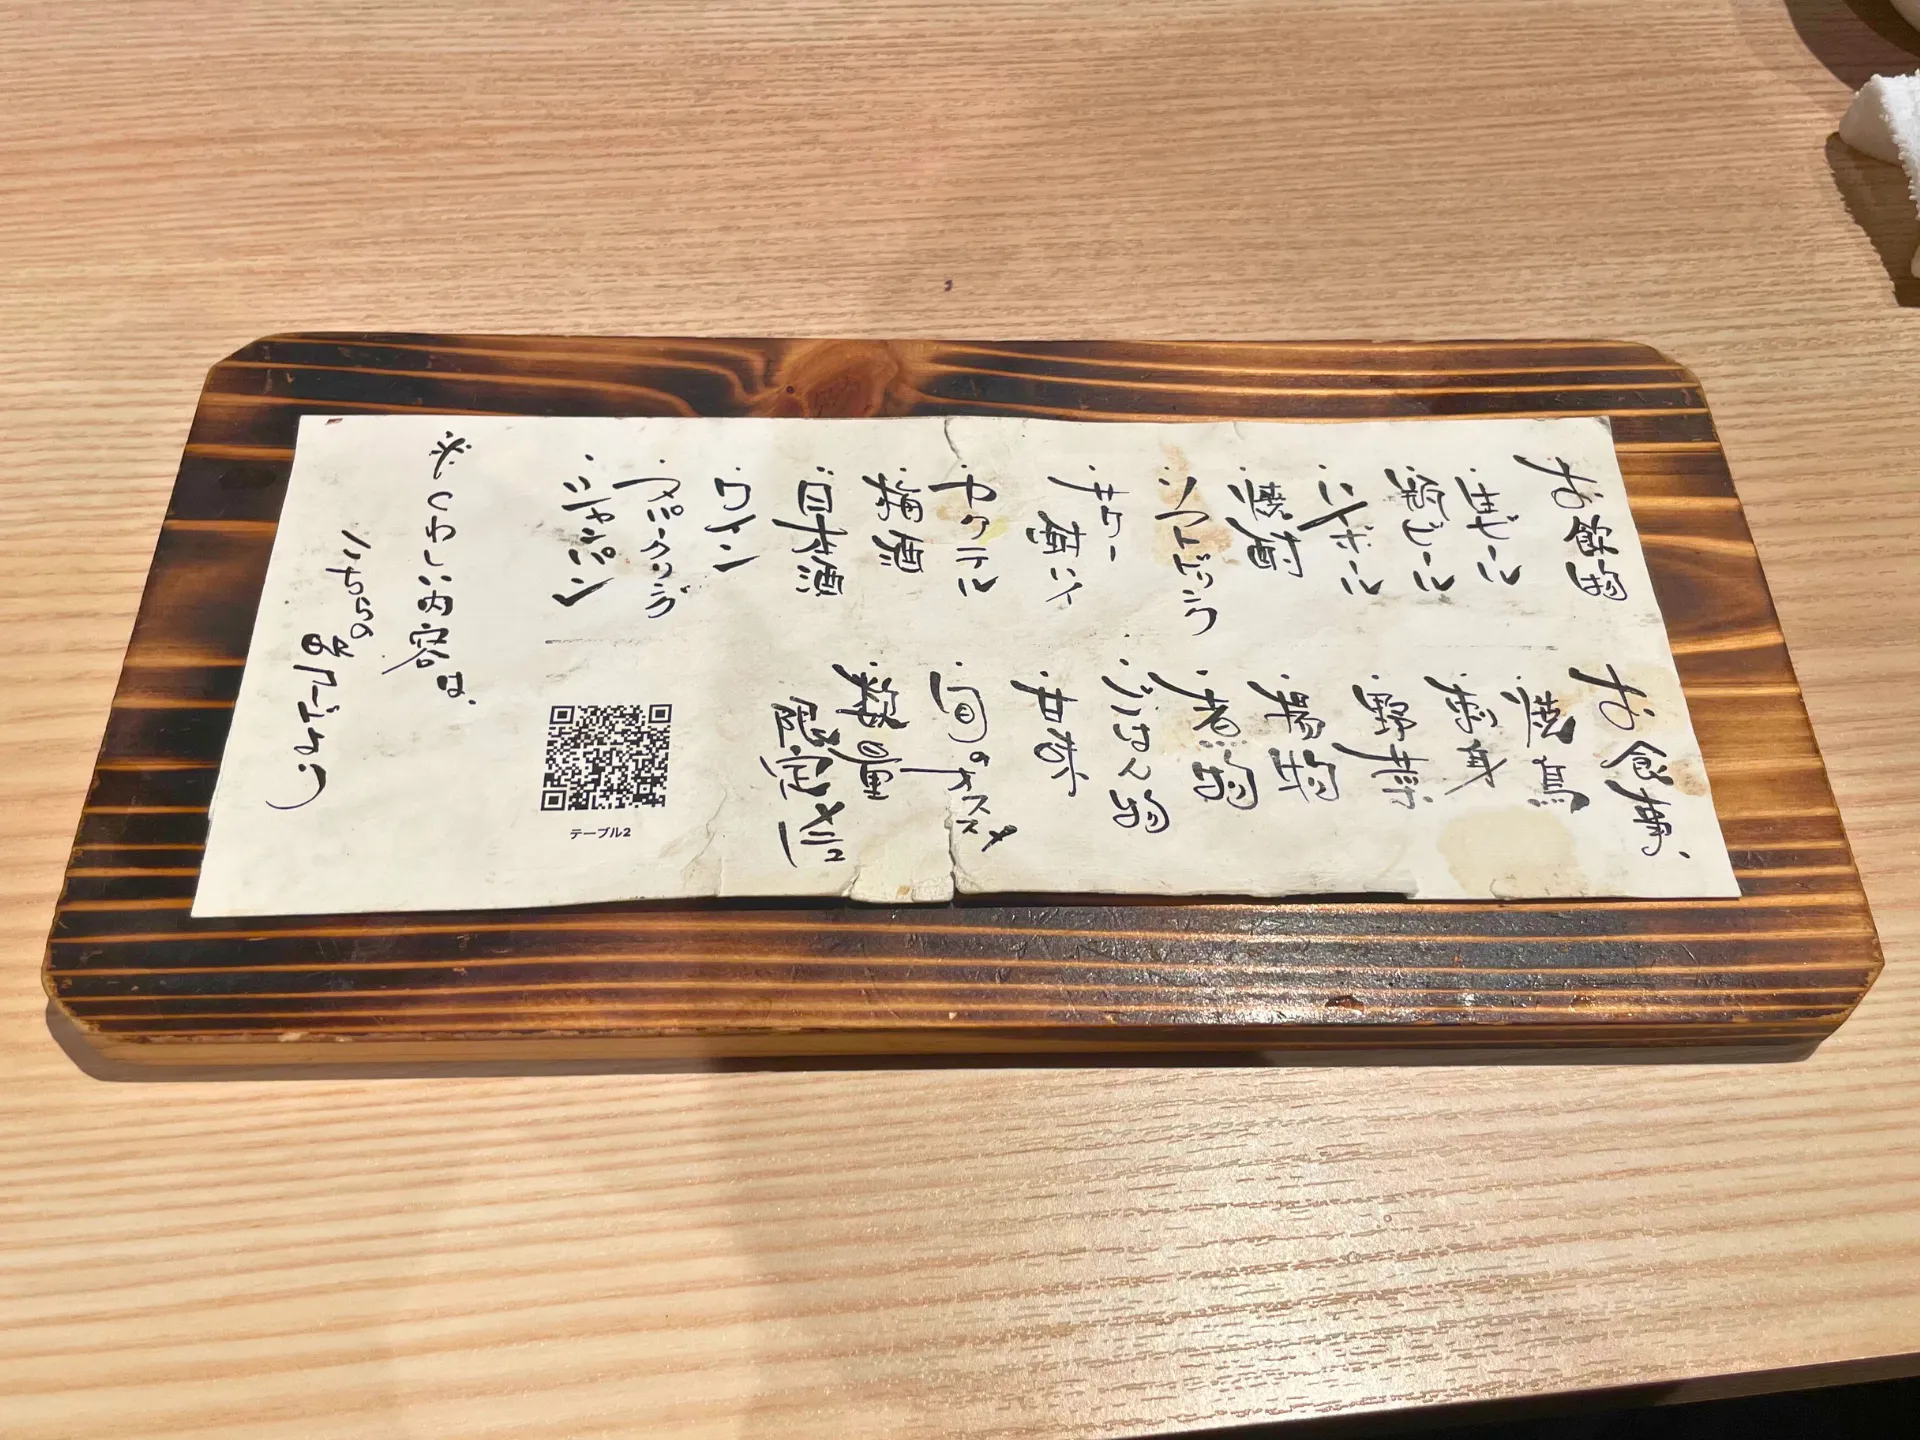 お飲物
・生ビール
・瓶ビール
・ハイボール
・焼酎
・ソフトドリンク
・サワー
酎ハイ
・カクテル
・梅酒
・日本酒
・ワイン
・スパークリング
・シャンパン
お食事
・焼鳥
・刺身
・野菜
・揚物
・煮物
・ごはん物
・甘味
・旬のオススメ
・数量
限定メニュー
テーブル2
※くわしい内容は、
こちらの
QRコードから